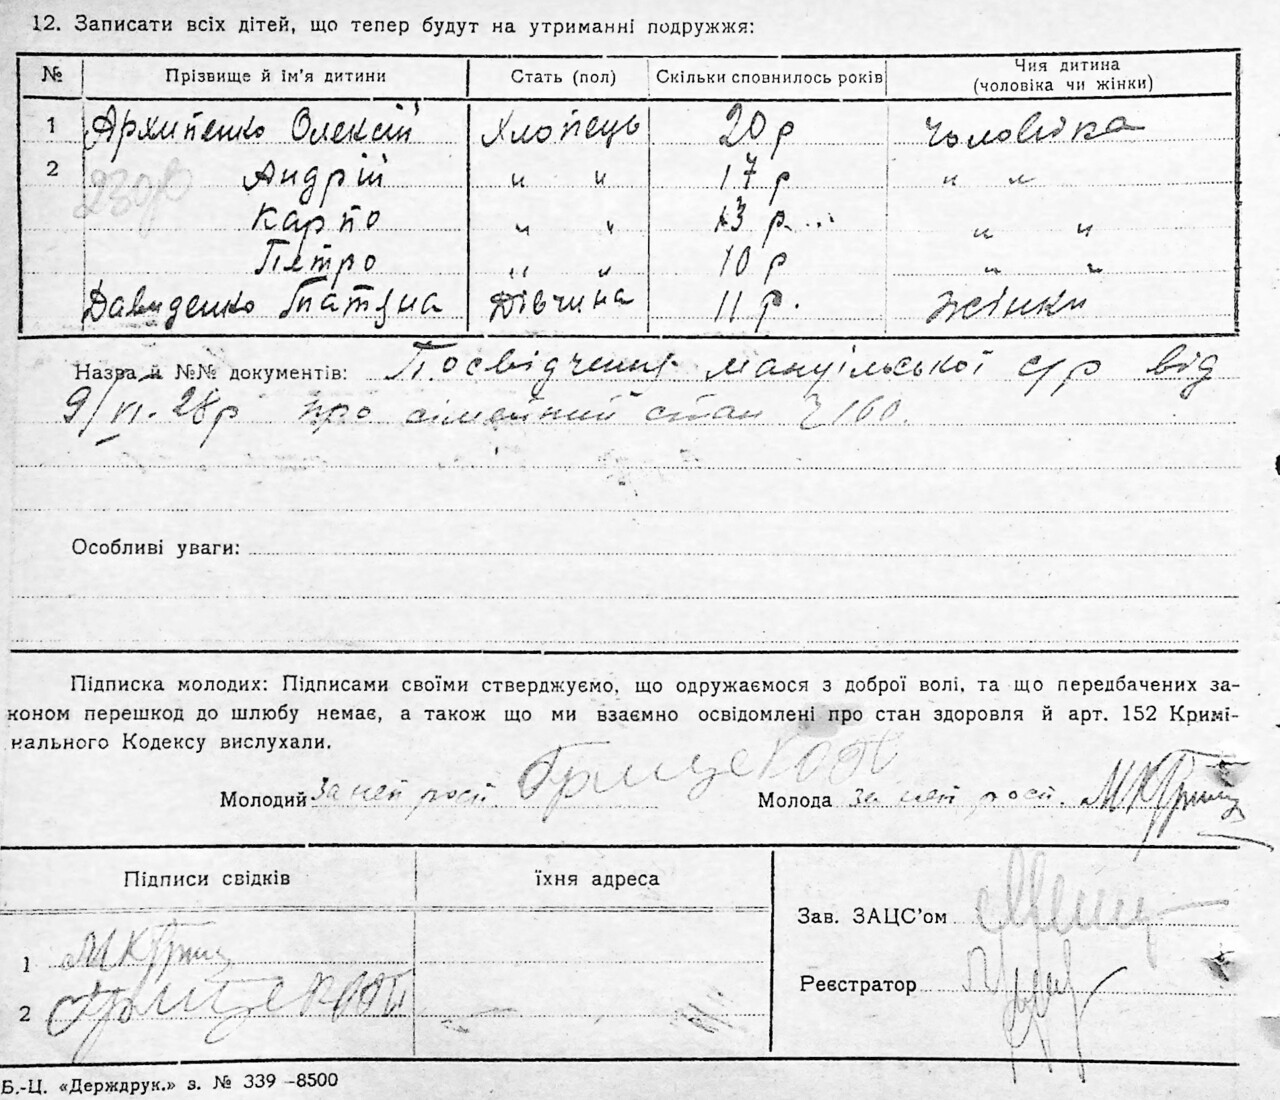 12. Записати всіх дітей, що тепер будут на утриманні подружжя:
№ Прізвище й ім'я дитини Стать (пол) Скільки сповнилось років Чия дитина (чоловіка чи жінки)
1 Архипенко Олексій Хлопець 20 р чоловіка
2 Андрій " " 17 р " "
Карпо " " 13 р. " "
Петро " " 10 р " "
Давиденко Татяна Дівчина 11 р. жінки
Назва й №№ документів: Посвідчення мануїльської с/р від
9/VI. 28р про сімейний стан 160.
Особливі уваги:
Підписка молодих: Підписами своїми стверджуємо, що одружаємося з доброї волі, та що передбачених за-
коном перешкод до шлюбу немає, а також що ми взаємно освідомлені про стан здоровля й арт. 152 Кримі-
нального Кодексу вислухали.
Молодий За неп розп. Молода за неп розп. МКГриц
Підписи свідків їхня адреса
Зав. ЗАЦС'ом
1 МКГриц
Реєстратор
2
Б.-Ц. «Держдрук.» з. № 339 –8500